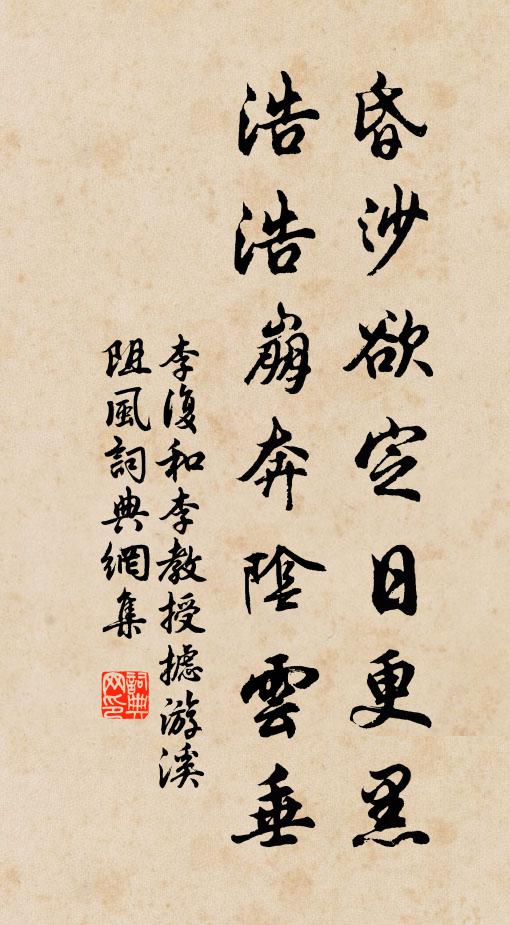 昏沙欲定日更黑
浩浩崩奔陰雲垂
李復和李教授摅游溪
阻風詞典網集
詞典网印